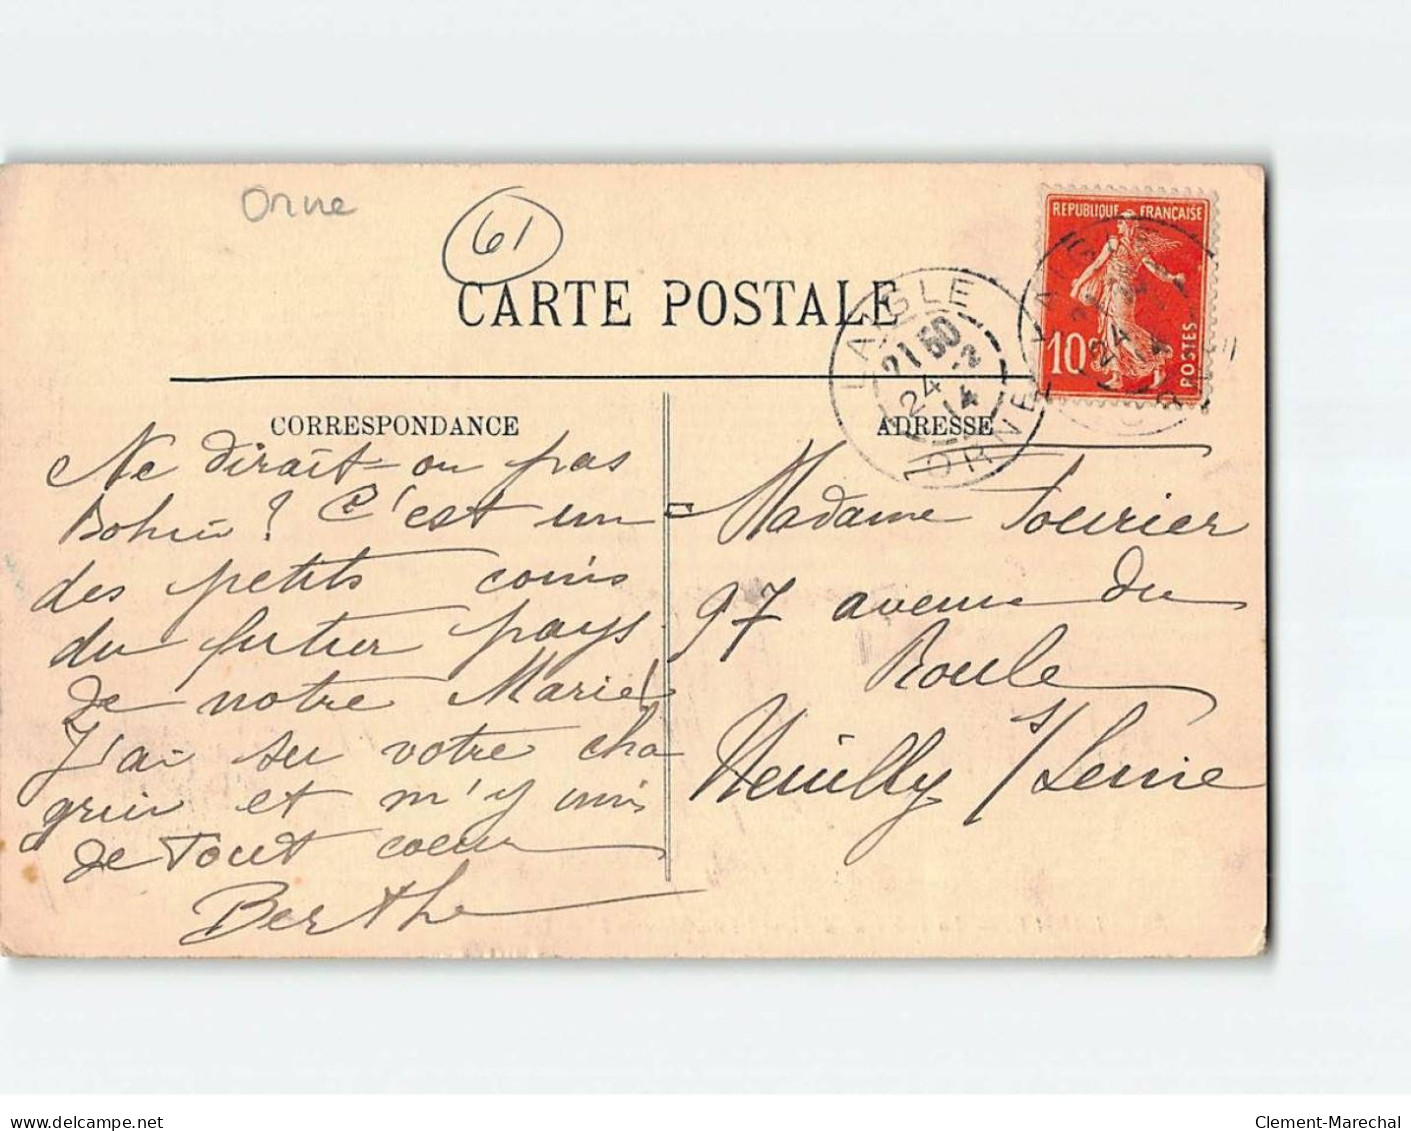 Orne
61
CARTE POSTALE
REPUBLIQUE FRANÇAISE
10
POSTES
LAIGLE
21 50
24 - 2
14
ORNE
CORRESPONDANCE
ADRESSE
Ne dirait-on pas
? C'est un
des petits coins
du futur pays
de notre Marie!
J'ai su votre cha
grin et m'y unis
de tout cœur
Berthe
Madame Fourier
97 avenue du
Roule
Neuilly s/ Seine
delcampe.net
Clement-Marechal